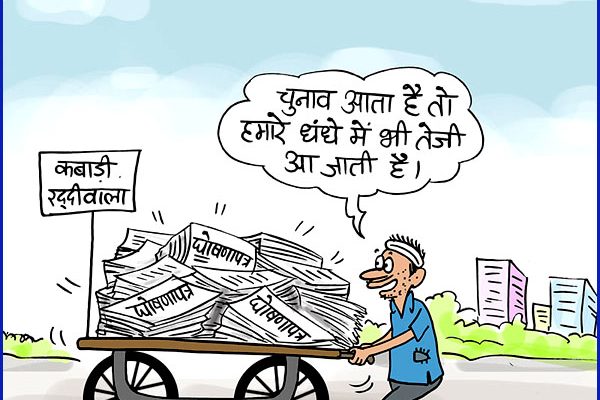 चुनाव आता है तो
हमारे धंधे में भी तेजी
आ जाती है।
कबाड़ी
रद्दीवाला
घोषणापत्र
घोषणापत्र
घोषणापत्र